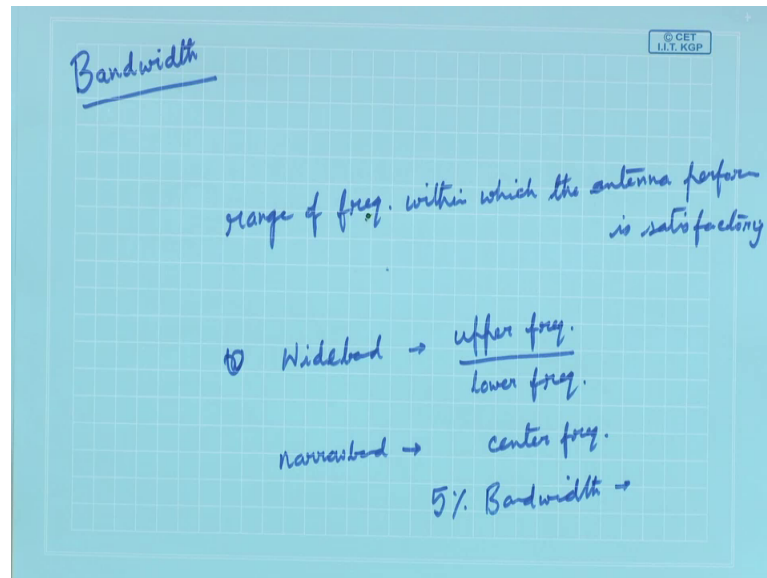 © CET
I.I.T. KGP
Bandwidth
range of freq. within which the antenna perform
is satisfactory
Wideband → upper freq.
lower freq.
narrowband → center freq.
5% Bandwidth →